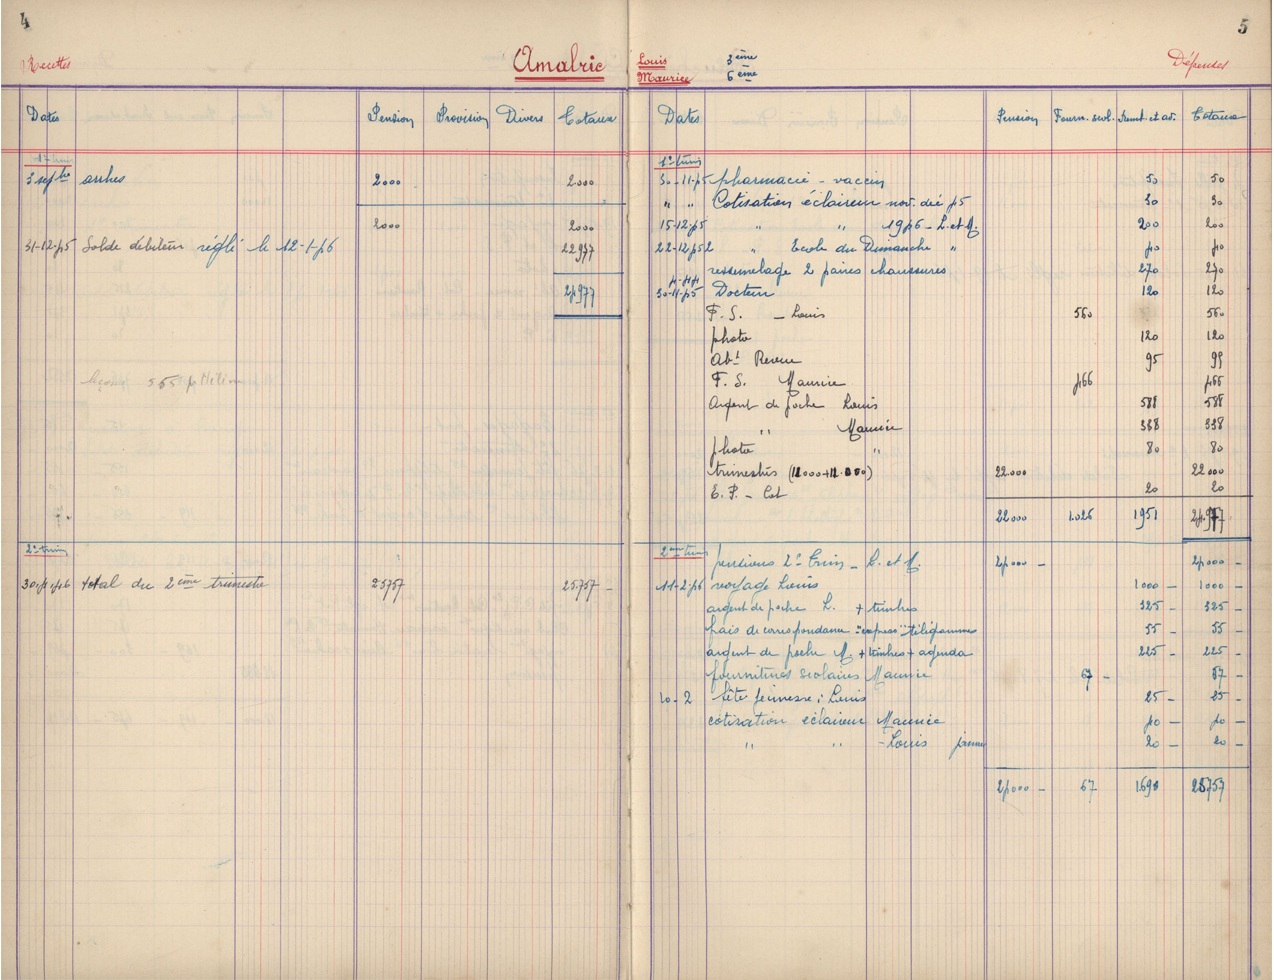 4
Recettes
Amalric
Dates Pension Provision Divers Totaux
1er trim
3 septbre arrhes 2000 2.000
2000 2000
31-12-45 Solde débiteur réglé le 12-1-46 22.977
24.977
leçons 565
2e trim
30.4.46 total du 2ème trimestre 25757 25.757 -
5
Louis 3ème
Maurice 6ème
Dépenses
Dates Pension Fourn. scol. Totaux
1er trim
30-11-45 pharmacie - vaccin 50 50
" " Cotisation éclaireur nov. déc 45 30 30
15-12-45 " " 1946 - L. et M. 200 200
22-12-45 2 " Ecole du Dimanche " 40 40
ressemelage 2 paires chaussures 270 270
30-11-45 Docteur 120 120
F. S. - Louis 560 560
photo 120 120
Abt Revue 95 95
F. S. Maurice 466 466
Argent de poche Louis 588 588
" Maurice 338 338
photo " 80 80
trimestres (11000+11.000) 22.000 22000
E. P. - Cot 20 20
22000 1.026 1951 24.977
2ème trim
pensions 2e Trim - L. et M. 24000 - 24000 -
11-2-46 voyage Louis 1000 - 1000 -
argent de poche L. + timbres 325 - 325 -
frais de correspondance "express" télégrammes 55 - 55 -
argent de poche M. + timbres + agenda 225 - 225 -
fournitures scolaires Maurice 67 - 67 -
20-2 fête jeunesse : Louis 25 - 25 -
cotisation éclaireur Maurice 40 - 40 -
" " - Louis 20 - 20 -
24000 - 67 1.690 25757